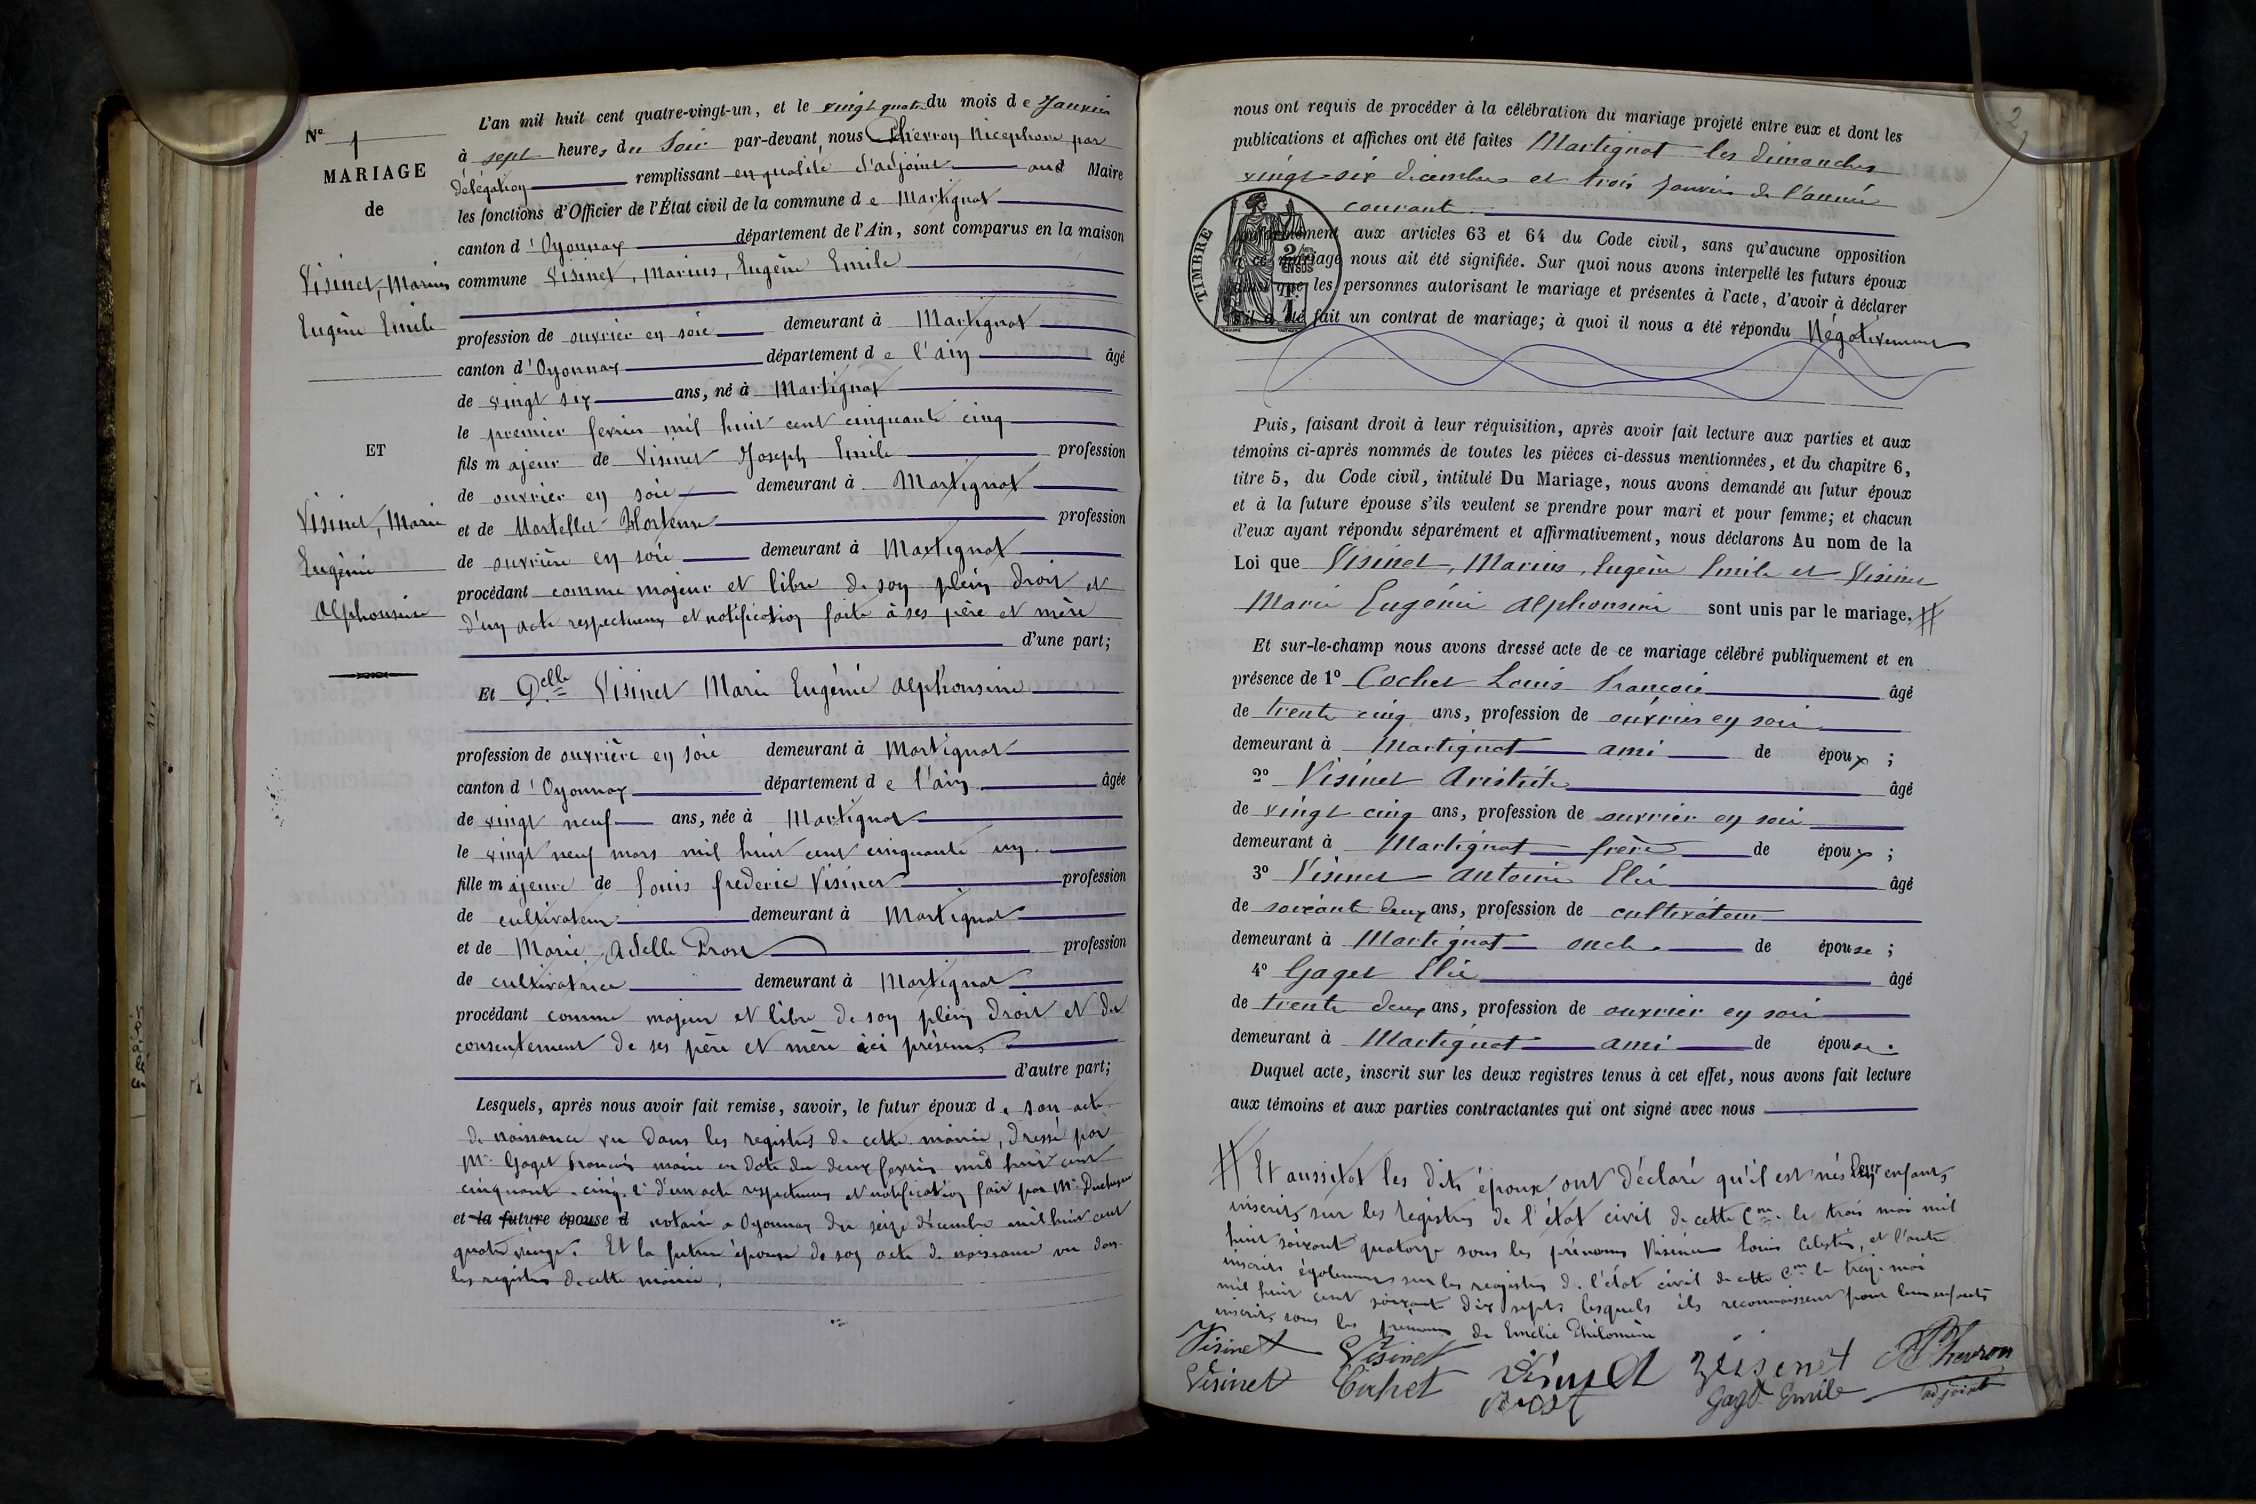 L'an mil huit cent quatre-vingt-un, et le vingt quatre du mois de Janvier
N° 1
à sept heures du Soir par-devant nous Chevron Nicephore par
MARIAGE
délégation remplissant en qualité d'adjoint aud Maire
de
les fonctions d'Officier de l'État civil de la commune de Martignat
canton d'Oyonnax département de l'Ain, sont comparus en la maison
Visinet, Marius
commune Visinet, Marius, Eugène Emile
Eugène Emile
profession de ouvrier en soie demeurant à Martignat
canton d'Oyonnax département de l'ain âgé
de vingt six ans, né à Martignat
le premier fevrier mil huit cent cinquante cinq
ET
fils majeur de Visinet Joseph Emile profession
de ouvrier en soie demeurant à Martignat
Visinet, Marie
et de Martellet Hortense profession
Eugénie
de ouvrière en soie demeurant à Martignat
Alphonsine
procédant comme majeur et libre de son plein droit et
d'un acte respectueux et notification faite à ses père et mère
d'une part;
Et Delle Visinet Marie Eugénie Alphonsine
profession de ouvrière en soie demeurant à Martignat
canton d'Oyonnax département de l'ain âgée
de vingt neuf ans, née à Martignat
le vingt neuf mars mil huit cent cinquante un
fille majeure de Louis frederic Visinet profession
de cultivateur demeurant à Martignat
et de Marie Adelle Prost profession
de cultivatrice demeurant à Martignat
procédant comme majeur et libre de son plein droit et du
consentement de ses père et mère ici présents
d'autre part;
Lesquels, après nous avoir fait remise, savoir, le futur époux de son acte
de naissance vu dans les registres de cette mairie, dressé par
Mr Gaget françois maire en date du deux fevrier mil huit cent
cinquante cinq. 2° d'un acte respectueux et notification fait par Mr
et la future épouse d notaire a Oyonnax du seize décembre mil huit cent
quatre vingt. Et la future épouse de son acte de naissance vu dans
les registres de cette mairie.
2
nous ont requis de procéder à la célébration du mariage projeté entre eux et dont les
publications et affiches ont été faites Martignat les dimanches
vingt-six decembre et trois Janvier de l'année
courante.
conformément aux articles 63 et 64 du Code civil, sans qu'aucune opposition
à ce mariage nous ait été signifiée. Sur quoi nous avons interpellé les futurs époux
ainsi que les personnes autorisant le mariage et présentes à l'acte, d'avoir à déclarer
s'il a été fait un contrat de mariage; à quoi il nous a été répondu Négativement
TIMBRE
2/10 EN SUS
1F
Puis, faisant droit à leur réquisition, après avoir fait lecture aux parties et aux
témoins ci-après nommés de toutes les pièces ci-dessus mentionnées, et du chapitre 6,
titre 5, du Code civil, intitulé Du Mariage, nous avons demandé au futur époux
et à la future épouse s'ils veulent se prendre pour mari et pour femme; et chacun
d'eux ayant répondu séparément et affirmativement, nous déclarons Au nom de la
Loi que Visinet, Marius, Eugène Emile et Visinet
Marie Eugénie Alphonsine sont unis par le mariage. #
Et sur-le-champ nous avons dressé acte de ce mariage célébré publiquement et en
présence de 1° Cochet Louis François âgé
de trente cinq ans, profession de ouvrier en soie
demeurant à Martignat ami de époux ;
2° Visinet Aristide âgé
de vingt cinq ans, profession de ouvrier en soie
demeurant à Martignat frère de époux ;
3° Visinet Antoine Elie âgé
de soixante deux ans, profession de cultivateur
demeurant à Martignat oncle de épouse ;
4° Gaget Elie âgé
de trente deux ans, profession de ouvrier en soie
demeurant à Martignat ami de épouse.
Duquel acte, inscrit sur les deux registres tenus à cet effet, nous avons fait lecture
aux témoins et aux parties contractantes qui ont signé avec nous
# Et aussitot les dits époux ont déclaré qu'il est nés deux enfants
inscrits sur les registres de l'état civil de cette Cne le trois mai mil
huit soixante quatorze sous les prénoms Visinet Louis Celestin, et l'autre
inscrits également sur les registres de l'état civil de cette Cne le treize mai
mil huit cent soixante dix sept lesquels ils reconnaissent pour leurs enfants
inscrits sous les prénoms de Emélie Philomène
Visinet Visinet Visinet Visinet NChevron
Visinet Cochet Prost Gaget Emile adjoint